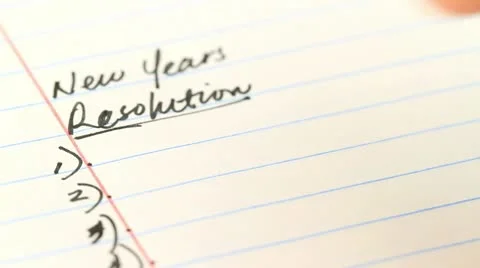 New Years
Resolution
1)
2)
3)